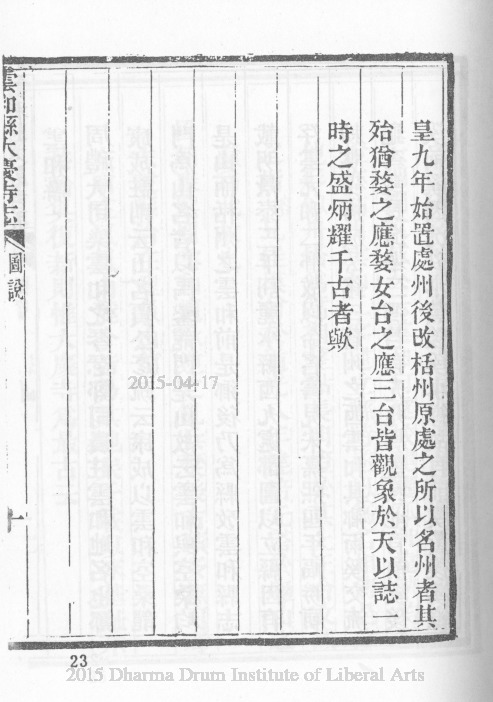 皇九年始置處州後改栝州原處之所以名州者其
殆猶婺之應婺女台之應三台皆觀象於天以誌一
時之盛炳耀千古者歟
雲和縣大慶寺志
圖說
一
2015-04-17
23
2015 Dharma Drum Institute of Liberal Arts